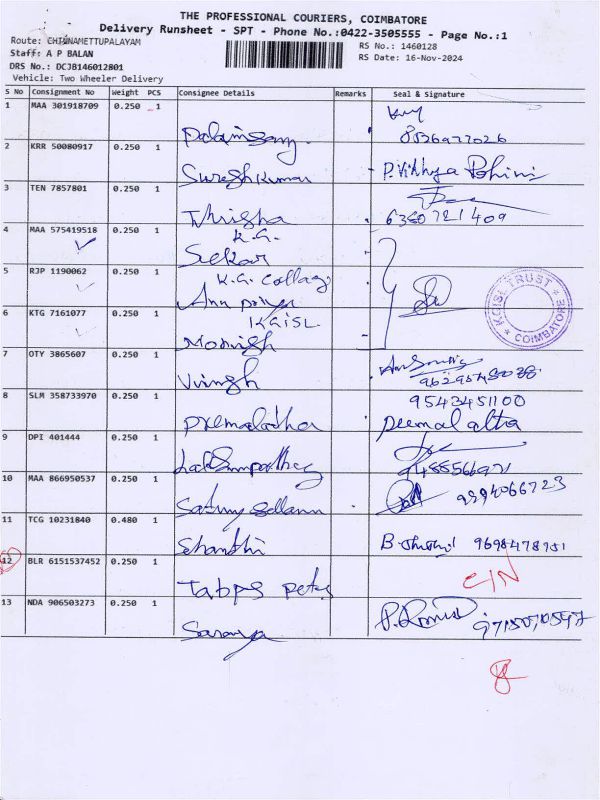 THE PROFESSIONAL COURIERS, COIMBATORE
Delivery Runsheet - SPT - Phone No.:0422-3505555 - Page No.:1
Route: CHINNAMETTUPALAYAM
RS No.: 1460128
Staff: A P BALAN
RS Date: 16-Nov-2024
DRS No.: DCJB146012801
Vehicle: Two Wheeler Delivery
S No Consignment No Weight PCS Consignee Details Remarks Seal & Signature
1 MAA 301918709 0.250 1
8526977026
2 KRR 50080917 0.250 1
Sureshkumar P. Vidhya
3 TEN 7857801 0.250 1
Thrisha
4 MAA 575419518 0.250 1 K.G.
Sekar
5 RJP 1190062 0.250 1 K.G. College
Ann priya
KGISL TRUST * COIMBATORE *
6 KTG 7161077 0.250 1 KGISL
Monish
7 OTY 3865607 0.250 1
8 SLM 358733970 0.250 1 9543451100
Premalatha
9 DPI 401444 0.250 1
10 MAA 866950537 0.250 1 9994066723
11 TCG 10231840 0.480 1
Shanthi 9698478951
12 BLR 6151537452 0.250 1 C/N
13 NDA 906503273 0.250 1
Saranya